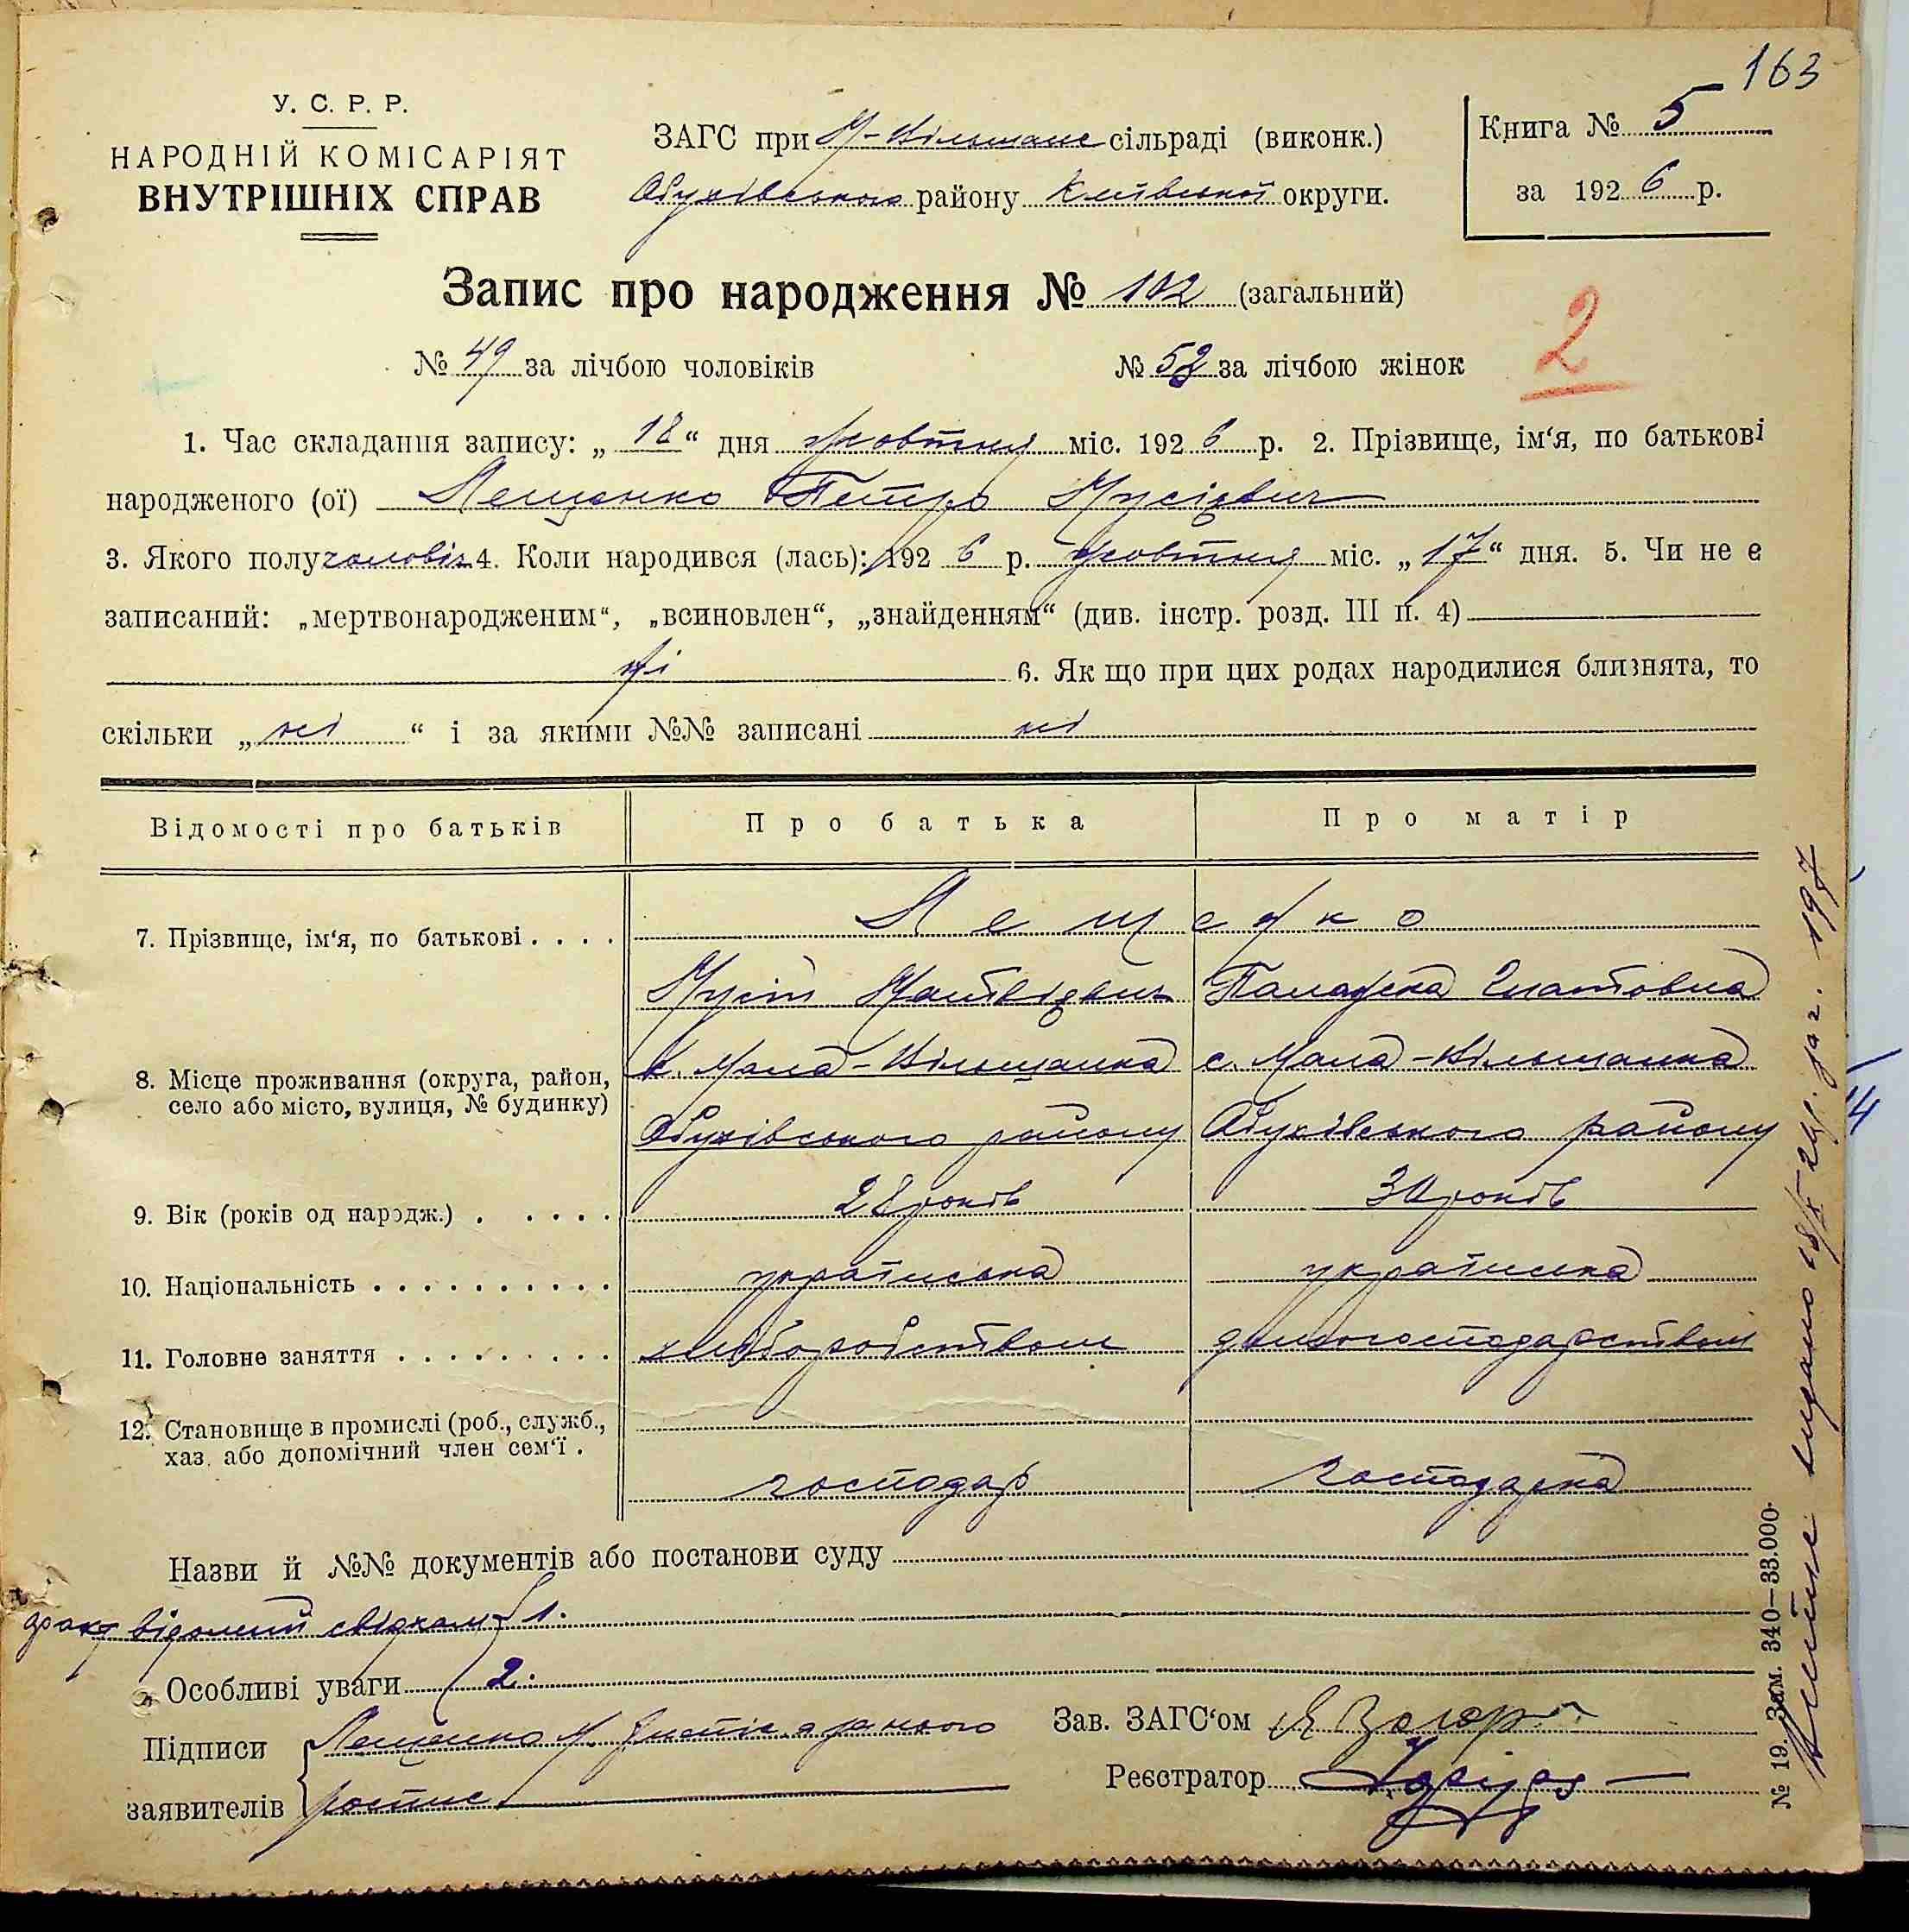 163
У. С. Р. Р.
НАРОДНІЙ КОМІСАРІЯТ
ВНУТРІШНІХ СПРАВ
ЗАГС при М-Вільшанс сільраді (виконк.)
Обухівського району Київської округи.
Книга № 5
за 1926 р.
Запис про народження № 102 (загальний)
№ 49 за лічбою чоловіків № 53 за лічбою жінок
2
1. Час складання запису: „18“ дня жовтня міс. 1926 р. 2. Прізвище, ім‘я, по батькові
народженого (ої) Лещенко Петро Мусієвич
3. Якого полу чоловіч 4. Коли народився (лась): 1926 р. жовтня міс. „17“ дня. 5. Чи не є
записаний: „мертвонародженим“, „всиновлен“, „знайденням“ (див. інстр. розд. III п. 4)
ні 6. Як що при цих родах народилися близнята, то
скільки „ні“ і за якими №№ записані ні
Відомості про батьків Про батька Про матір
7. Прізвище, ім‘я, по батькові . . . . Лещенко
Мусій Матвієвич Палажка Гнатовна
8. Місце проживання (округа, район, село або місто, вулиця, № будинку) с. Мала-Вільшанка с. Мала-Вільшанка
Обухівського району Обухівського району
9. Вік (років од народж.) . . . . . 28 років 30 років
10. Національність . . . . . . . . . . українська українська
11. Головне заняття . . . . . . . . . хліборобством домогосподарством
12. Становище в промислі (роб., служб.,
хаз. або допомічний член сем‘ї . господар господарка
Назви й №№ документів або постанови суду
факт відомий свідкам 1.
Особливі уваги 2.
Підписи заявителів Лещенко М.
розпис
Зав. ЗАГС‘ом
Реєстратор
№ 19. Зам. 340—33.000.
видано 18/X 26 р. за № 197
14